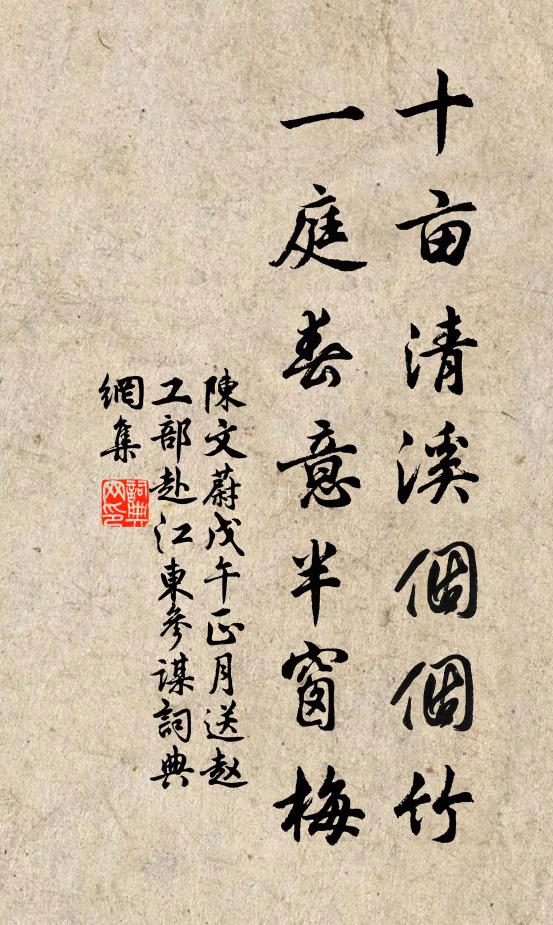 十亩清溪個個竹
一庭春意半窗梅
陳文蔚戊午正月送赵
工部赴江東參谋詞典
網集
詞典网印